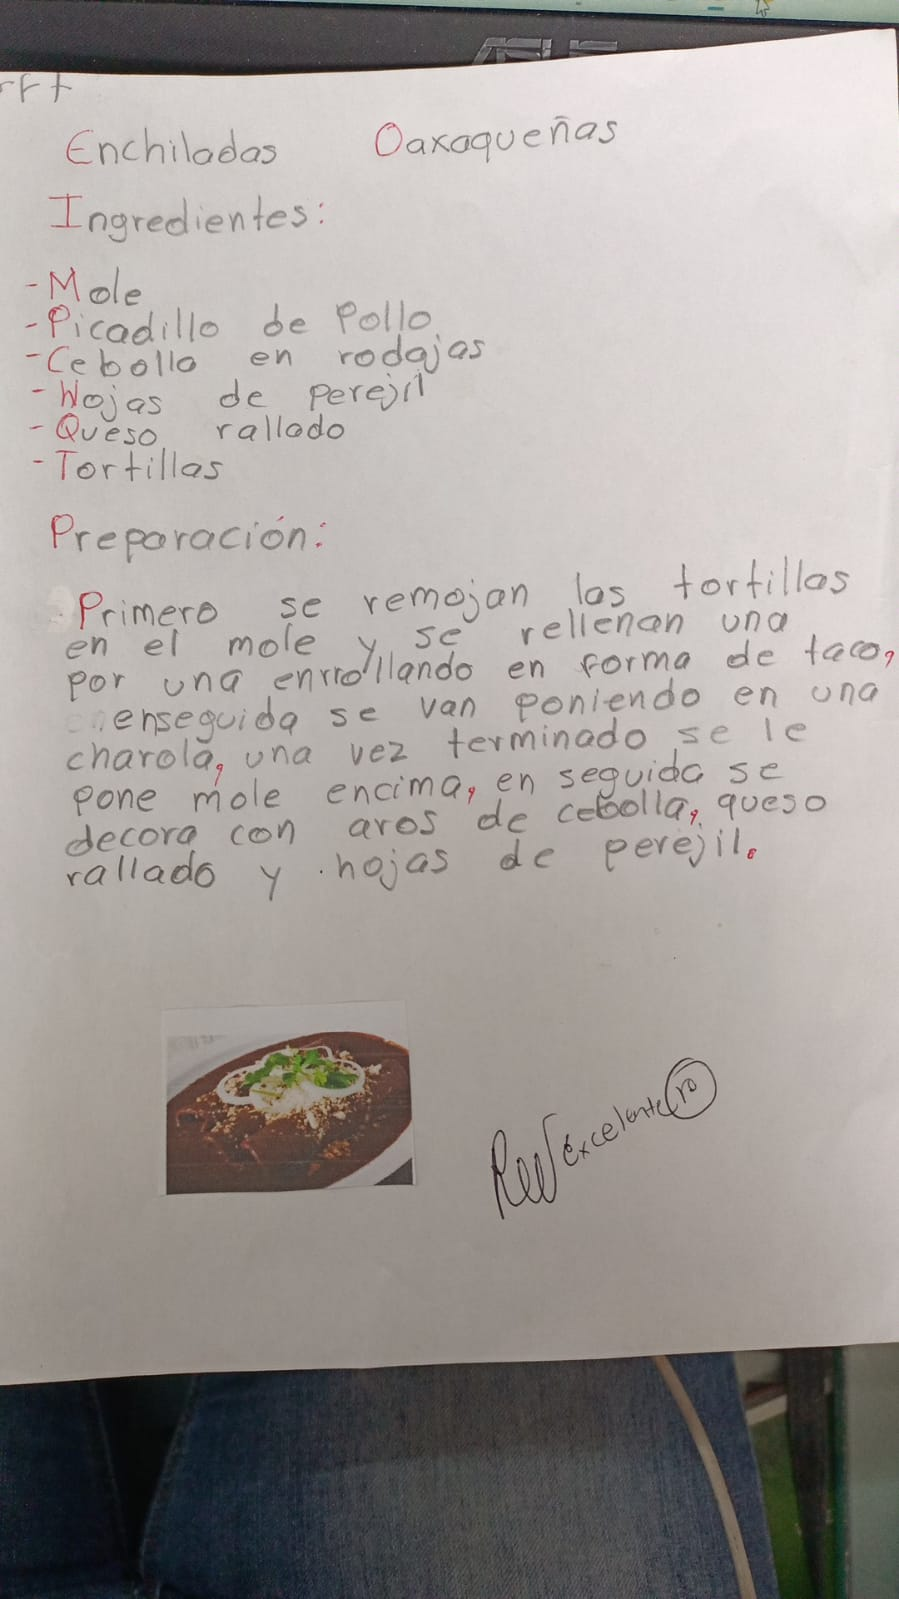 Enchiladas Oaxaqueñas
Ingredientes:
-Mole
-Picadillo de Pollo
-Cebolla en rodajas
-Hojas de perejil
-Queso rallado
-Tortillas
Preparación:
Primero se remojan las tortillas
en el mole y se rellenan una
por una enrrollando en forma de taco,
enseguida se van poniendo en una
charola, una vez terminado se le
pone mole encima, en seguida se
decora con aros de cebolla, queso
rallado y hojas de perejil.
Rev Excelente 10